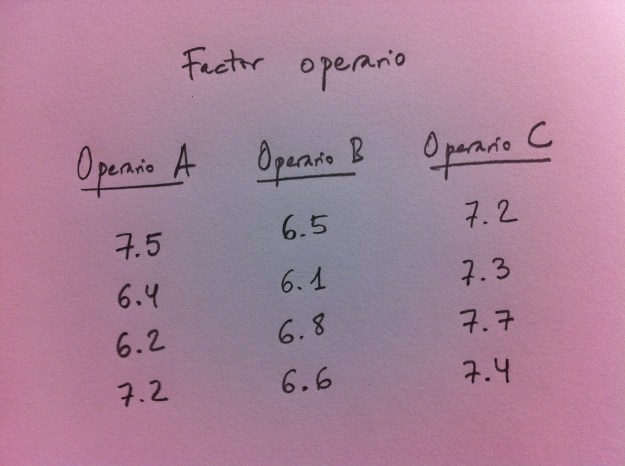 Factor operario
Operario A Operario B Operario C
7.5 6.5 7.2
6.4 6.1 7.3
6.2 6.8 7.7
7.2 6.6 7.4